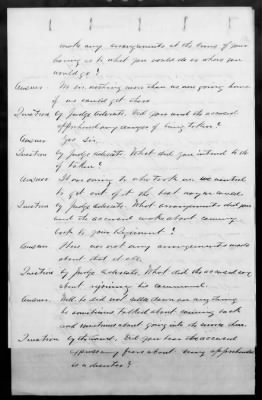 make any arrangements at the time of your
leaving as to what you would do or where you
would go?
Answer No sir, nothing more than we were going home
if we could get there
Question by Judge Advocate. Did you and the accused
apprehend any danger of being taken?
Answer Yes Sir.
Question by Judge Advocate. What did you intend to do
if taken?
Answer It was owing to who took us we wanted
to get out of it the best way we could
Question by Judge Advocate What arrangements did you
and the accused make about coming
back to your Regiment?
Answer There was not any arrangements made
about that at all
Question by Judge Advocate What did the accused say
about rejoining his command.
Answer. Well he did not say anything
he sometimes talked about coming back
and sometimes about going into the service there.
Question by the Court. Did you hear the accused
express any fears about being apprehended
as a deserter?